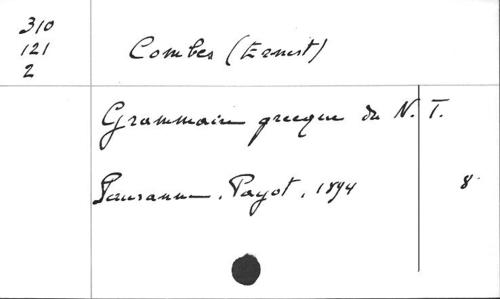 310
121
2
Combes (Ernest)
Grammaire grecque du N. T.
Lausanne, Payot, 1894
8